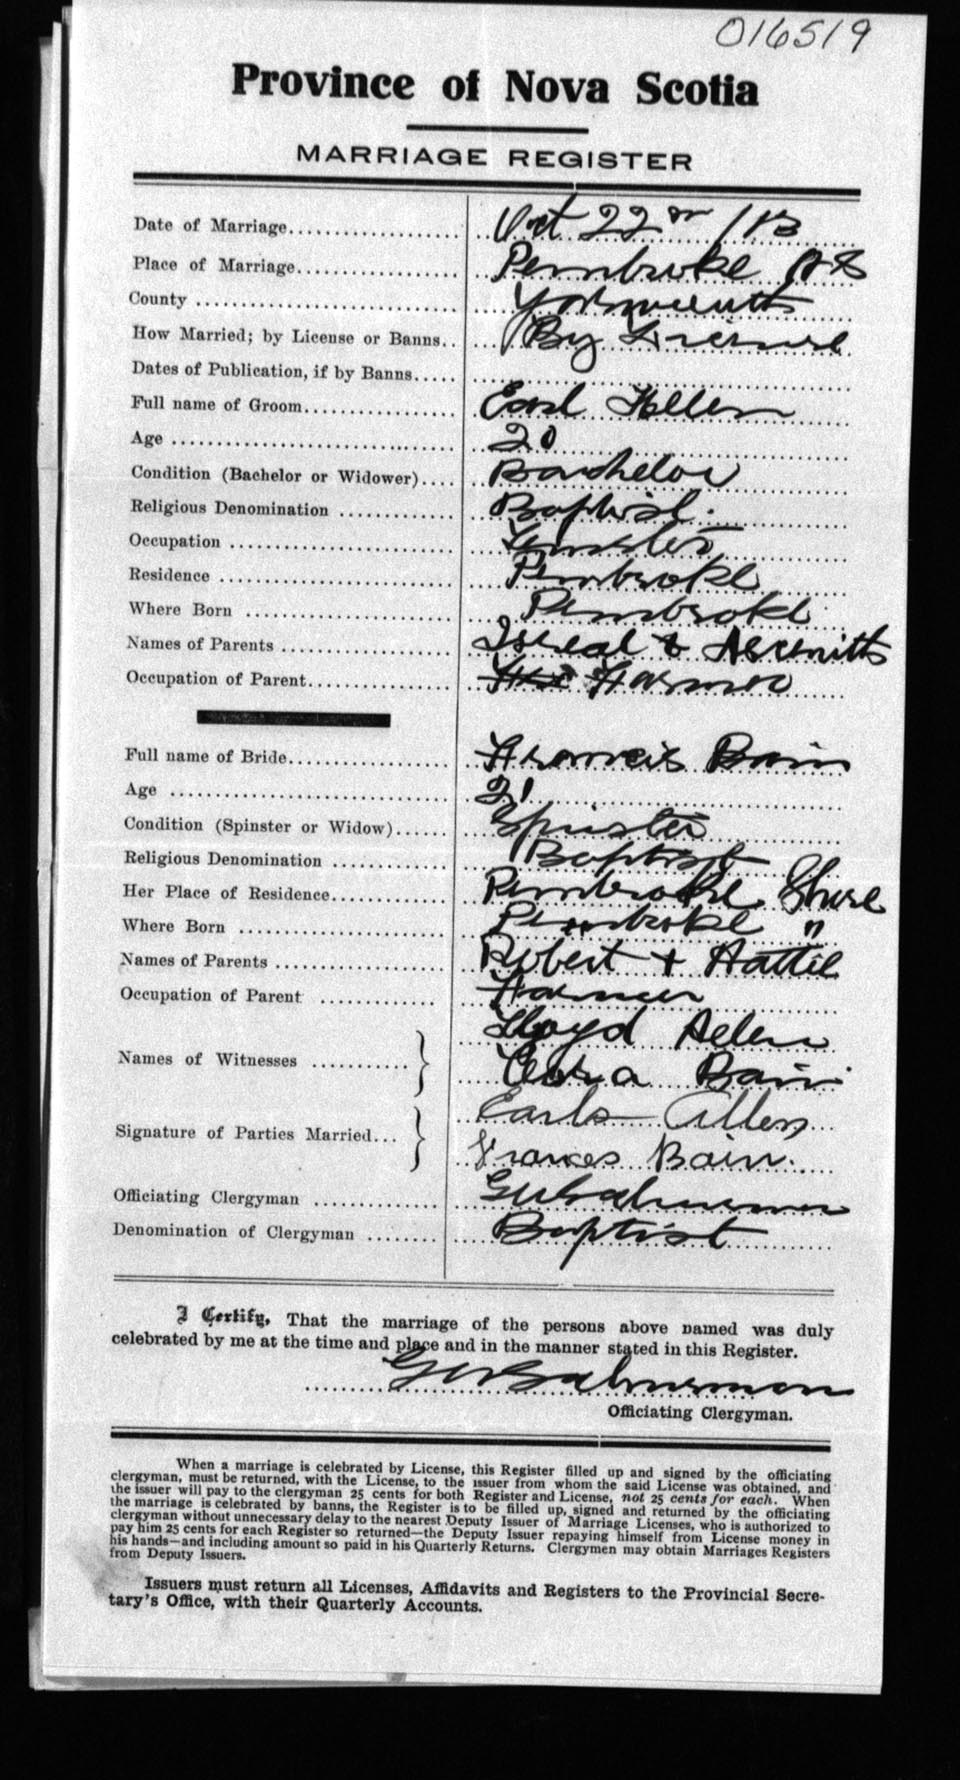 016519
Province of Nova Scotia
MARRIAGE REGISTER
Date of Marriage Oct 22 /13
Place of Marriage Pembroke N S
County Yarmouth
How Married; by License or Banns By License
Dates of Publication, if by Banns
Full name of Groom Earl Allen
Age 20
Condition (Bachelor or Widower) Bachelor
Religious Denomination Baptist.
Occupation Teamster
Residence Pembroke
Where Born Pembroke
Names of Parents Isreal &
Occupation of Parent Farmer
Full name of Bride Francis Bain
Age 21
Condition (Spinster or Widow) Spinster
Religious Denomination Baptist
Her Place of Residence Pembroke Shore
Where Born Pembroke "
Names of Parents Robert + Hattie
Occupation of Parent Farmer
Lloyd Allen
Names of Witnesses
Bain
Earl Allen
Signature of Parties Married
Frances Bain.
Officiating Clergyman
Denomination of Clergyman Baptist
I Certify, That the marriage of the persons above named was duly
celebrated by me at the time and place and in the manner stated in this Register.
Officiating Clergyman.
When a marriage is celebrated by License, this Register filled up and signed by the officiating
clergyman, must be returned, with the License, to the issuer from whom the said License was obtained, and
the issuer will pay to the clergyman 25 cents for both Register and License, not 25 cents for each. When
the marriage is celebrated by banns, the Register is to be filled up, signed and returned by the officiating
clergyman without unnecessary delay to the nearest Deputy Issuer of Marriage Licenses, who is authorized to
pay him 25 cents for each Register so returned—the Deputy Issuer repaying himself from License money in
his hands—and including amount so paid in his Quarterly Returns. Clergymen may obtain Marriages Registers
from Deputy Issuers.
Issuers must return all Licenses, Affidavits and Registers to the Provincial Secre-
tary's Office, with their Quarterly Accounts.